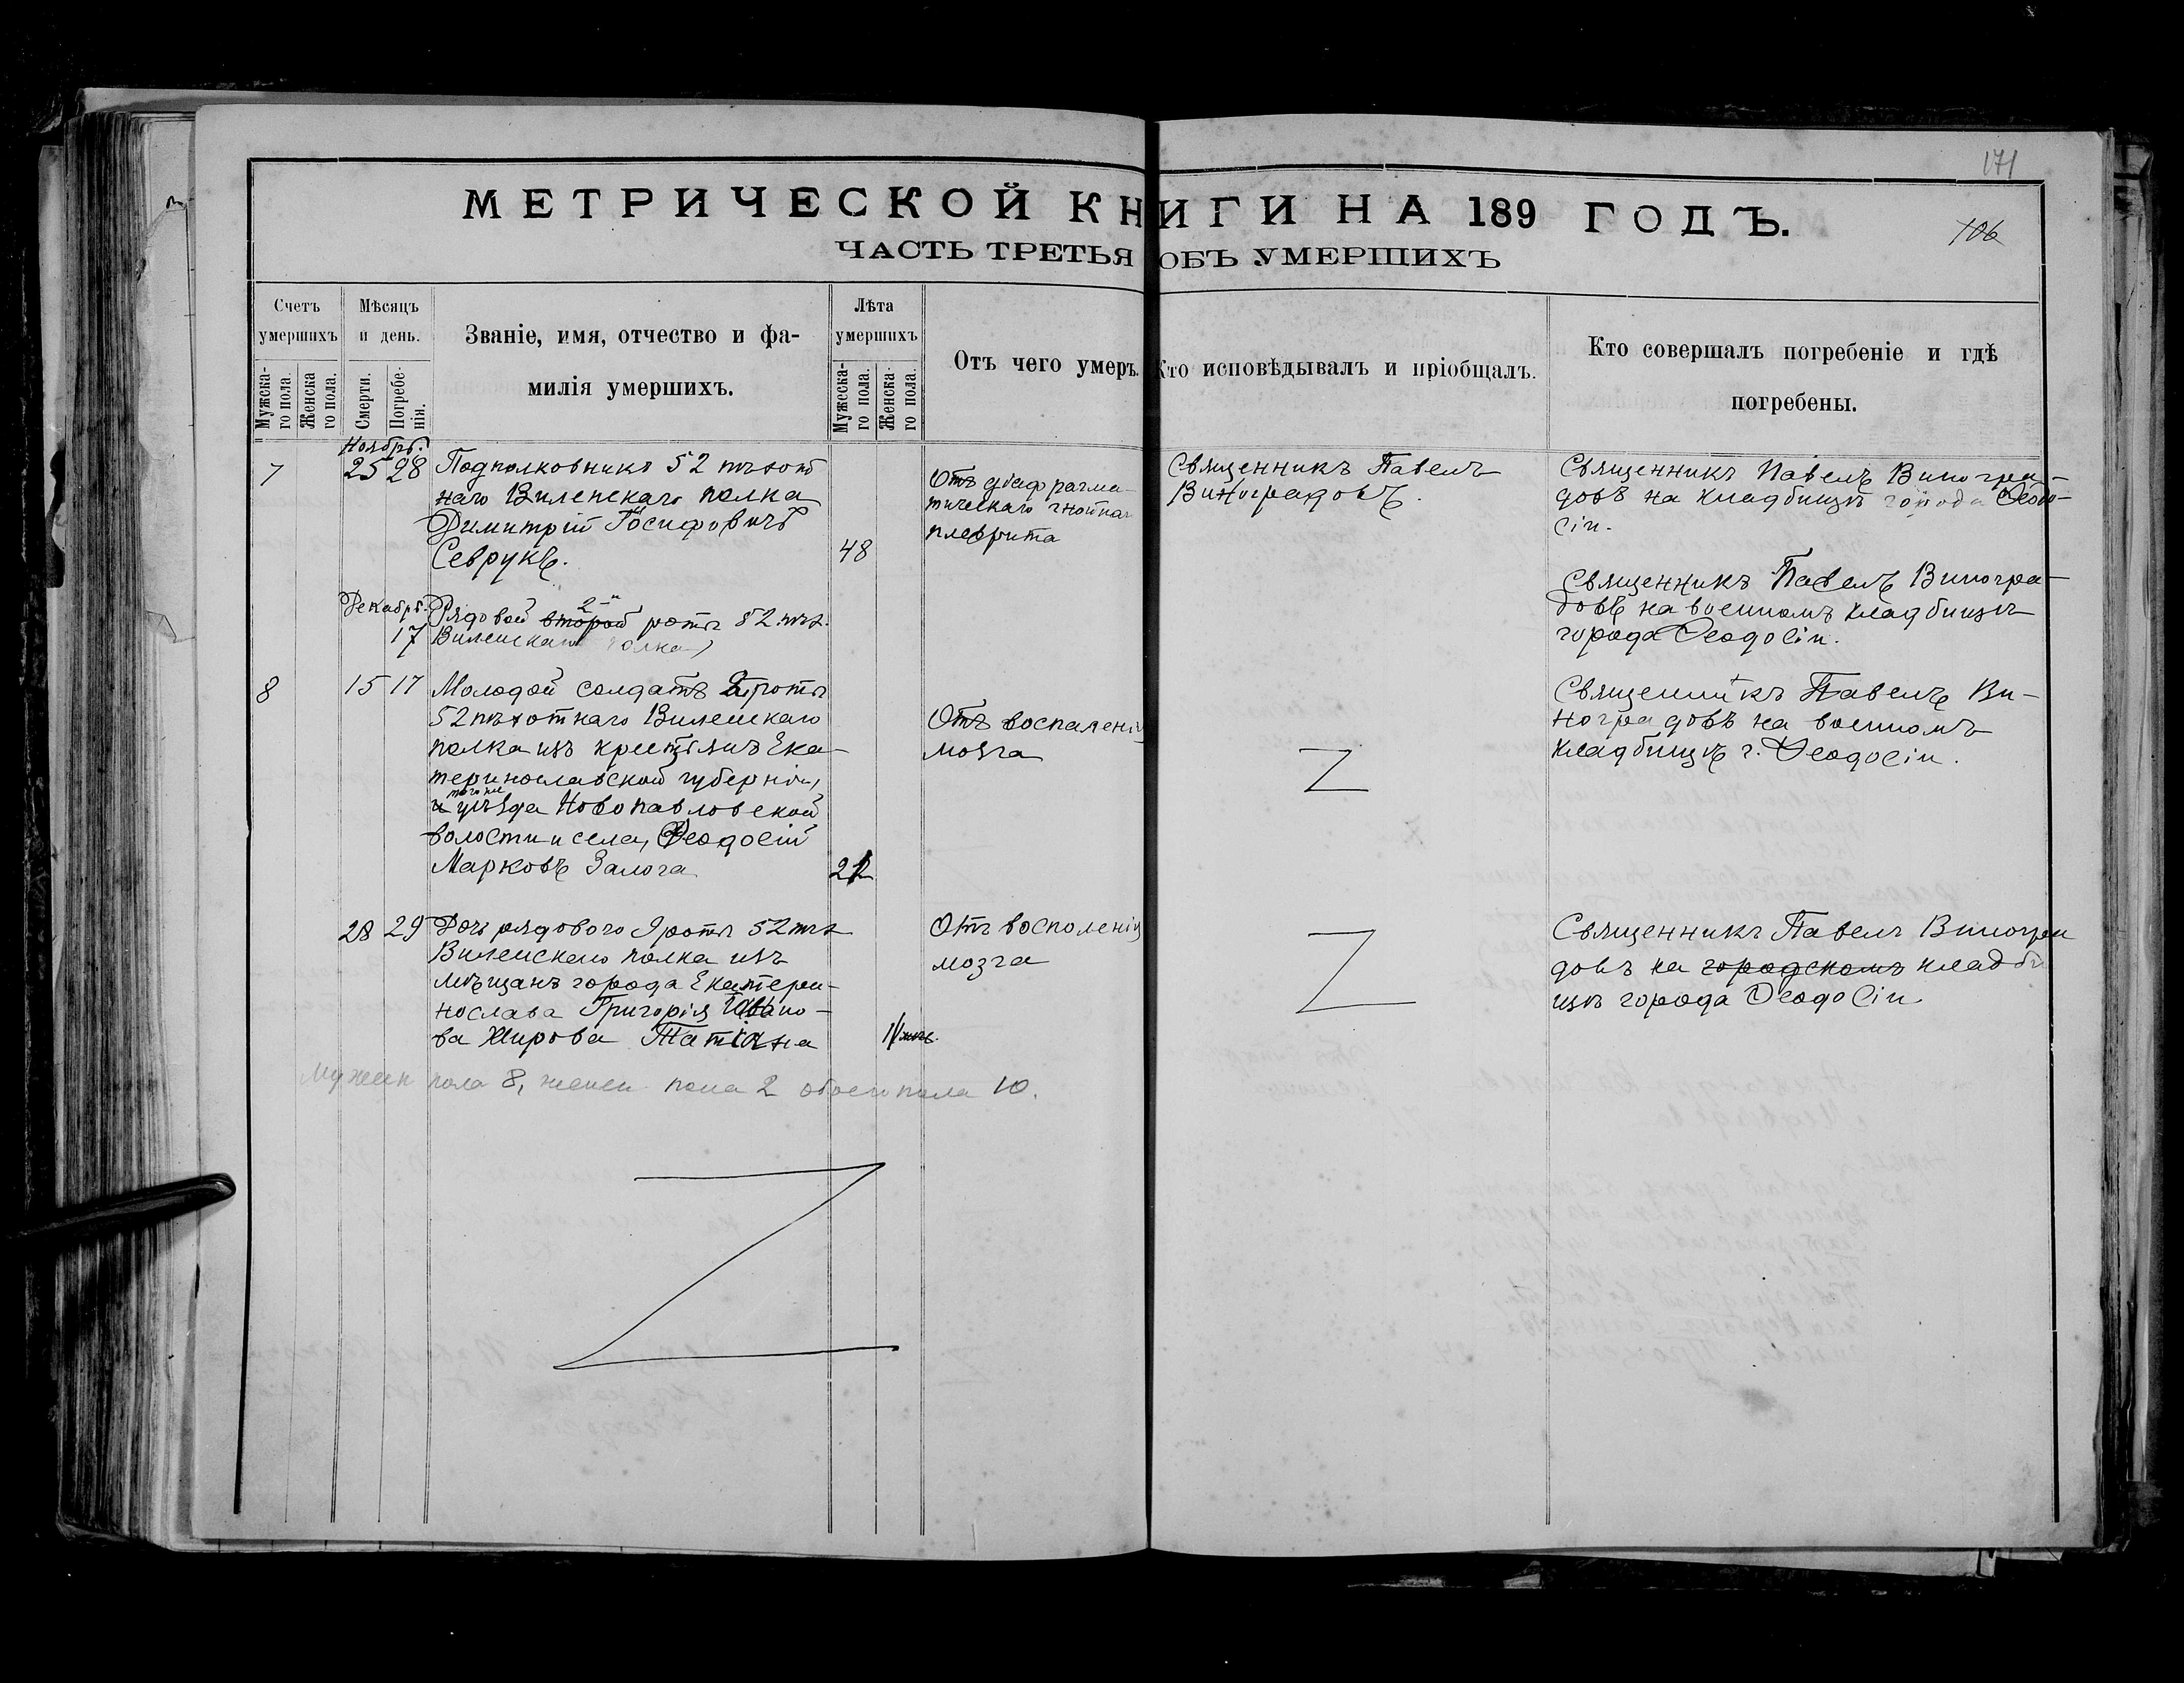 171
МЕТРИЧЕСКОЙ КНИГИ НА 189 ГОДЪ.
106
ЧАСТЬ ТРЕТЬЯ ОБЪ УМЕРШИХЪ
Счетъ умершихъ
Мужеска-го пола.
Женска го пола.
Мѣсяцъ и день.
Смерти.
Погребе-нія.
Званіе, имя, отчество и фа-
милія умершихъ.
Лѣта умершихъ
Мужеска-го пола.
Женска-го пола.
Отъ чего умеръ.
Кто исповѣдывалъ и пріобщалъ.
Кто совершалъ погребеніе и гдѣ
погребены.
Ноябрь.
7
25 28
Подполковникъ 52 пѣхот
наго Виленскаго полка
Димитрій Іосифовичъ
Севрукъ.
48
Отъ діафрагма-
тическаго гнойнаг
плеврита
Священникъ Павелъ
Виноградовъ.
Священникъ Павелъ Виногра-
довъ на кладбищѣ города Ѳеодо-
сіи.
Декабрь.
17
2-й
Рядовой второй роты 52 пѣх.
Виленскаго полка
Священникъ Павелъ Виногра-
довъ на военномъ кладбищѣ
города Ѳеодосіи.
8
15 17
Молодой солдатъ 2 роты
52 пѣхотнаго Виленскаго
полка изъ крестьянъ Ека-
теринославской губерніи,
того же
и уѣзда Новопавловской
волости и села, Ѳеодосій
Марковъ Залога
Отъ воспаленія
мозга
Священникъ Павелъ Ви-
ноградовъ на военномъ
кладбищѣ г. Ѳеодосіи.
28 29
Дочь рядового 9 роты 52 пѣх
Виленскаго полка изъ
мѣщанъ города Екатери-
нослава Григорія Ивано-
ва Жирова Татіана
Отъ восполенія
мозга
Священникъ Павелъ Виногра
довъ на городскомъ кладби
щѣ города Ѳеодосіи
Мужеск пола 8, женск. пола 2 обоего пола 10.